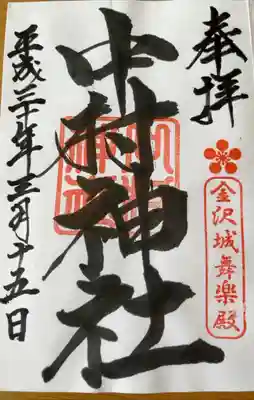 奉拝
金沢城舞楽殿
中村神社
平成三十年三月十五日